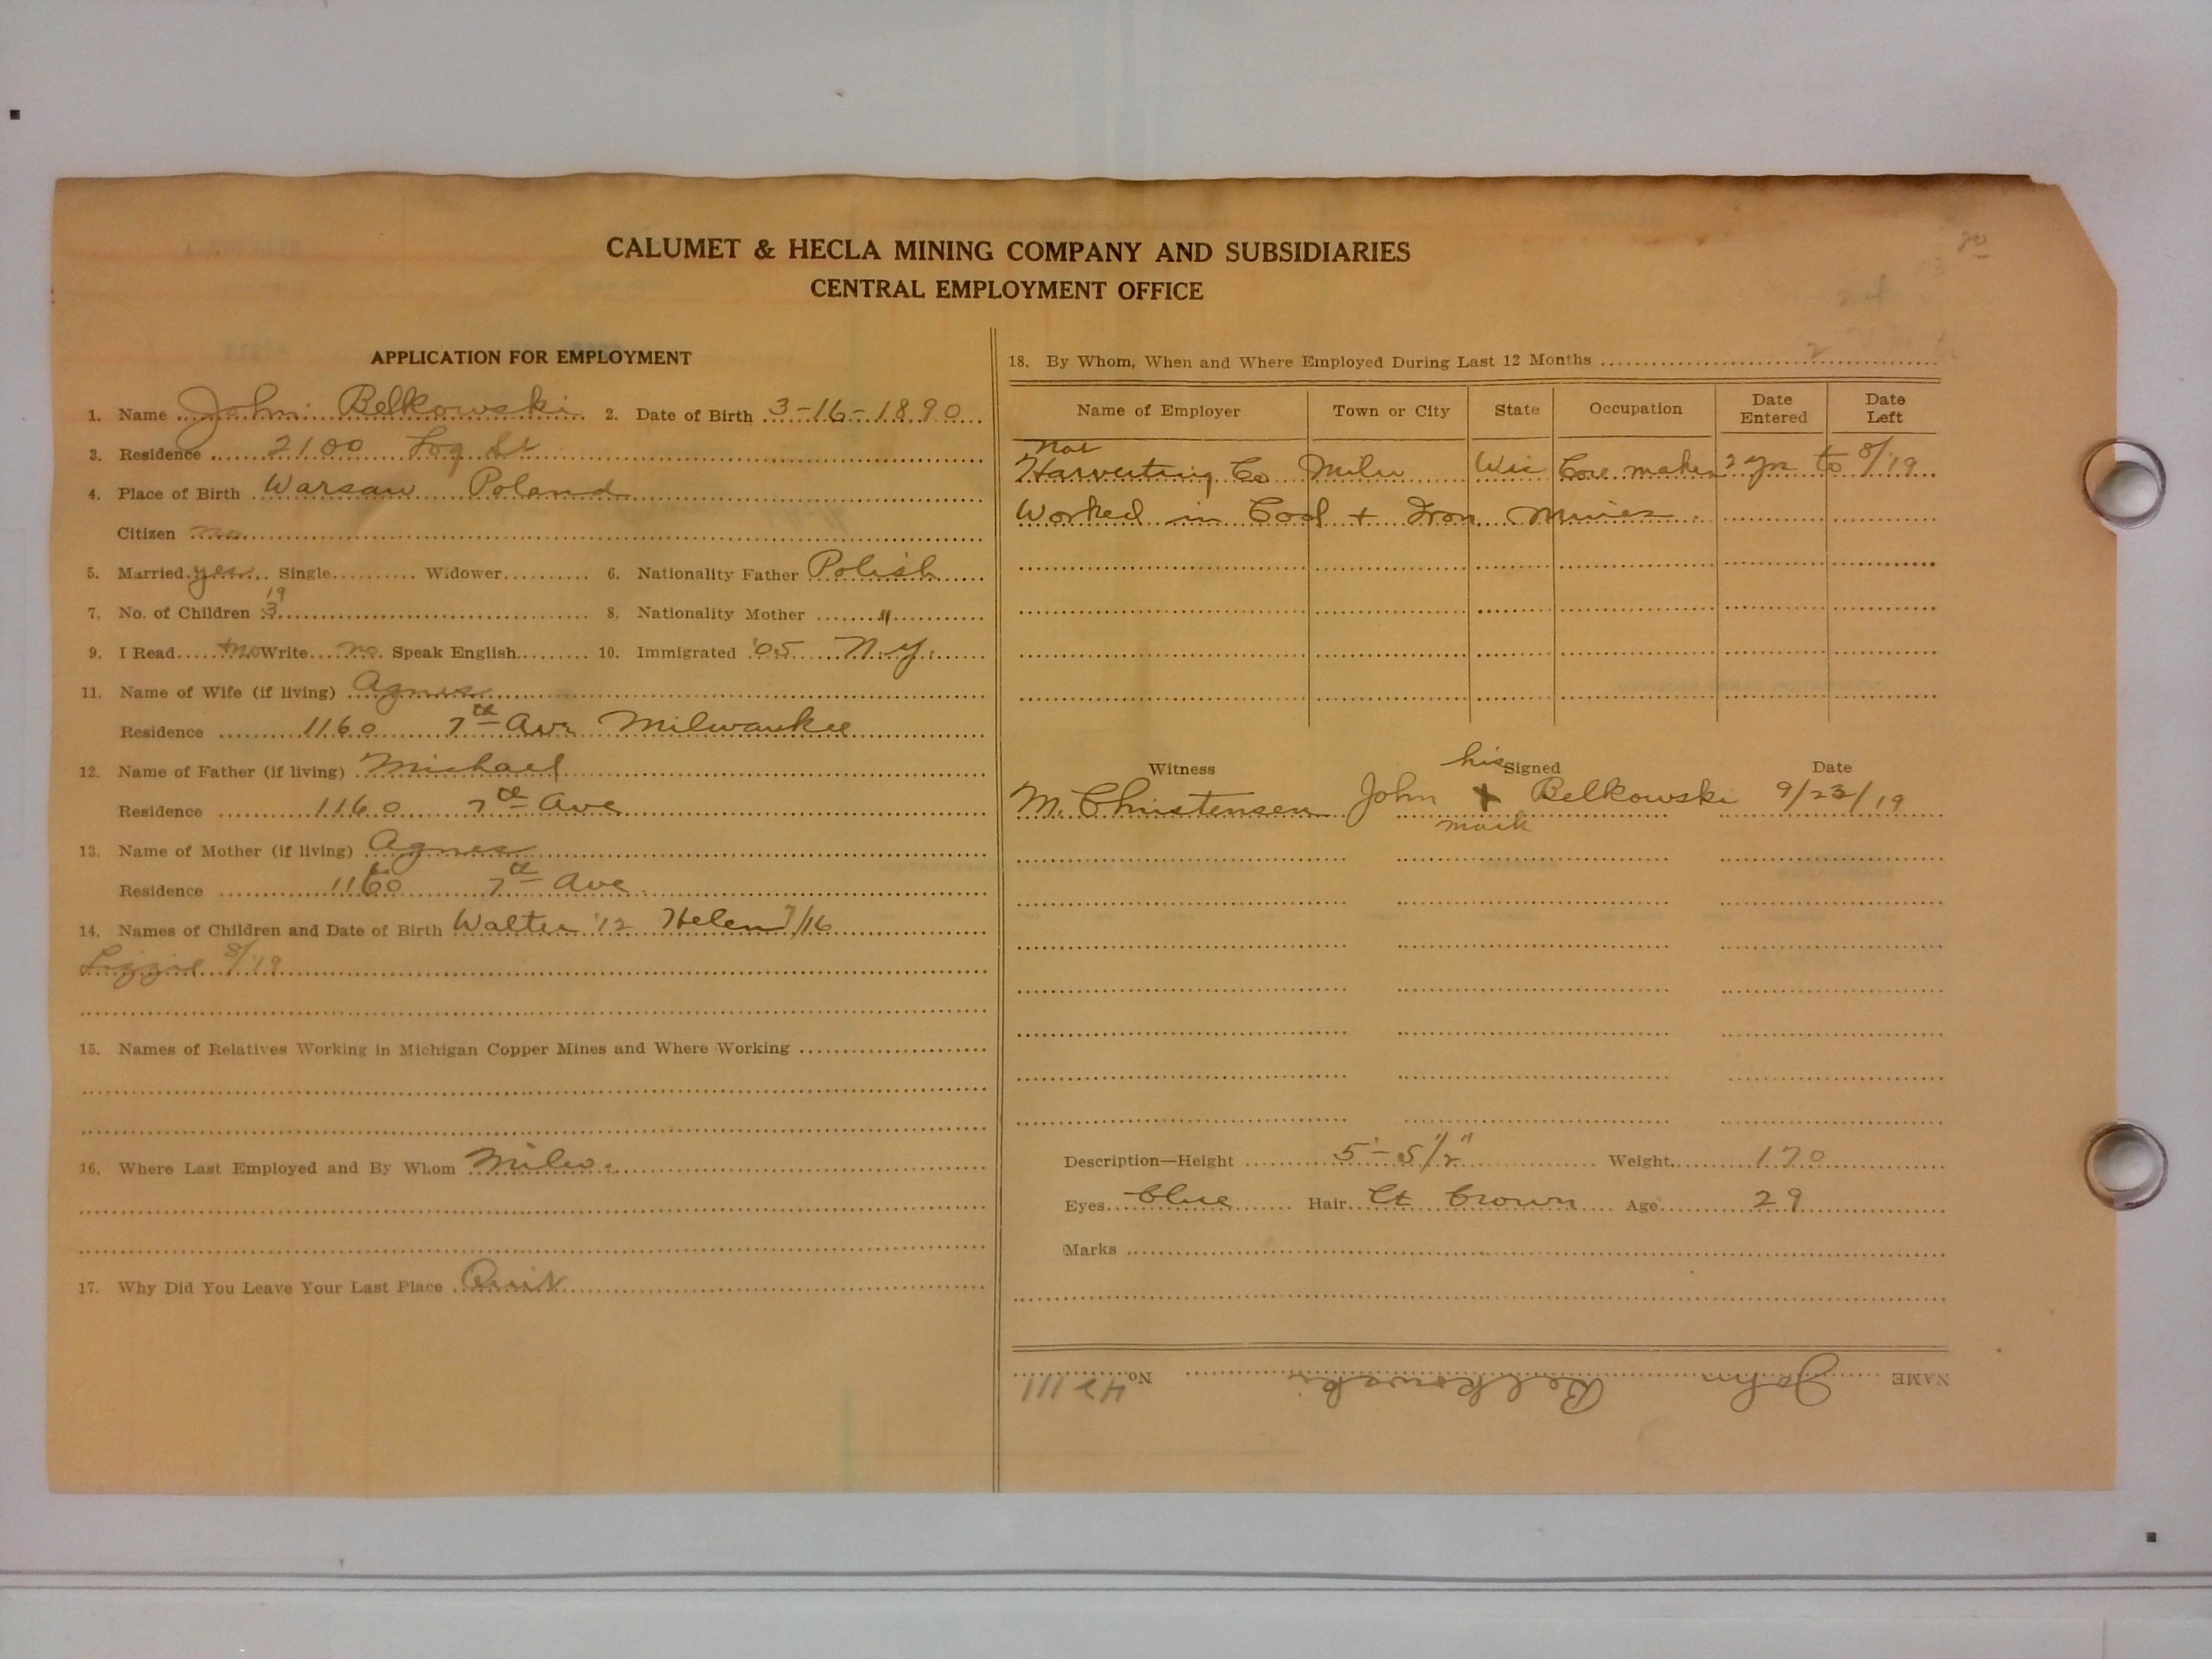 CALUMET & HECLA MINING COMPANY AND SUBSIDIARIES
CENTRAL EMPLOYMENT OFFICE
APPLICATION FOR EMPLOYMENT
1. Name John Belkowski 2. Date of Birth 3-16-1890
3. Residence 2100 Log St
4. Place of Birth Warsaw Poland
Citizen no
5. Married yes Single Widower 6. Nationality Father Polish
19
7. No. of Children 3 8. Nationality Mother "
9. I Read no Write no Speak English 10. Immigrated '05 N.Y.
11. Name of Wife (if living) Agnes
Residence 1160 7th Ave Milwaukee
12. Name of Father (if living) Michael
Residence 1160 7th Ave
13. Name of Mother (if living) Agnes
Residence 1160 7th Ave.
14. Names of Children and Date of Birth Walter '12 Helen 7/16
Lizzie 8/19
15. Names of Relatives Working in Michigan Copper Mines and Where Working
16. Where Last Employed and By Whom Milw.
17. Why Did You Leave Your Last Place Quit
18. By Whom, When and Where Employed During Last 12 Months
Name of Employer Town or City State Occupation Date Entered Date Left
Harvesting Co Milw Wis Core maker 2 yrs to 8/19
Worked in Coal + Iron Mines.
his
Witness Signed Date
M. Christensen John + Belkowski 9/23/19
mark
Description—Height 5'-5 1/2" Weight 170
Eyes blue Hair Lt brown Age 29
Marks
NAME John Belkowski No. 42111